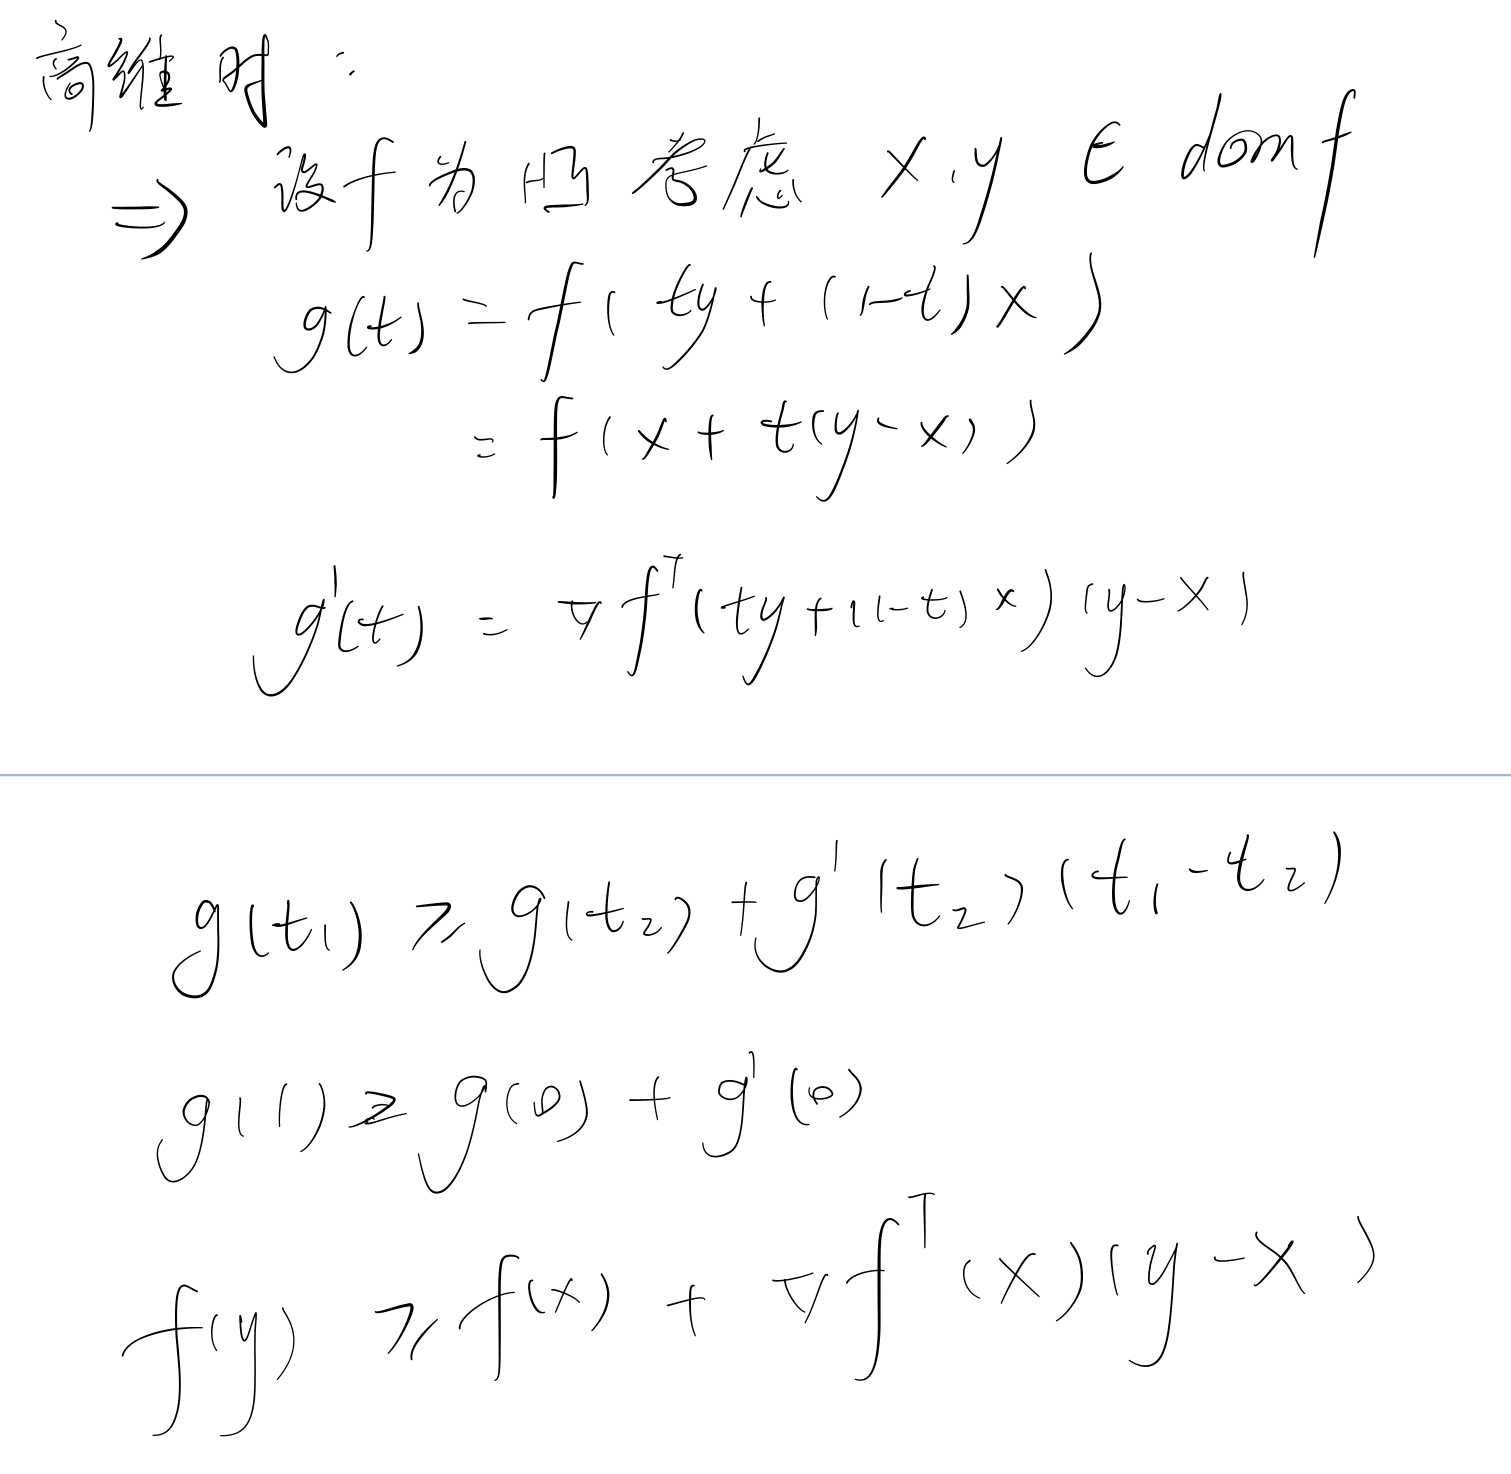 高维时：
⇒ 设f为凹 考虑 x,y ∈ dom f
g(t) = f( ty + (1-t) x )
= f( x + t(y-x) )
g'(t) = ∇f^T (ty+(1-t) x) (y-x)
g(t₁) ≥ g(t₂) + g'(t₂) (t₁-t₂)
g(1) ≥ g(0) + g'(0)
f(y) ≥ f(x) + ∇f^T (x) (y-x)